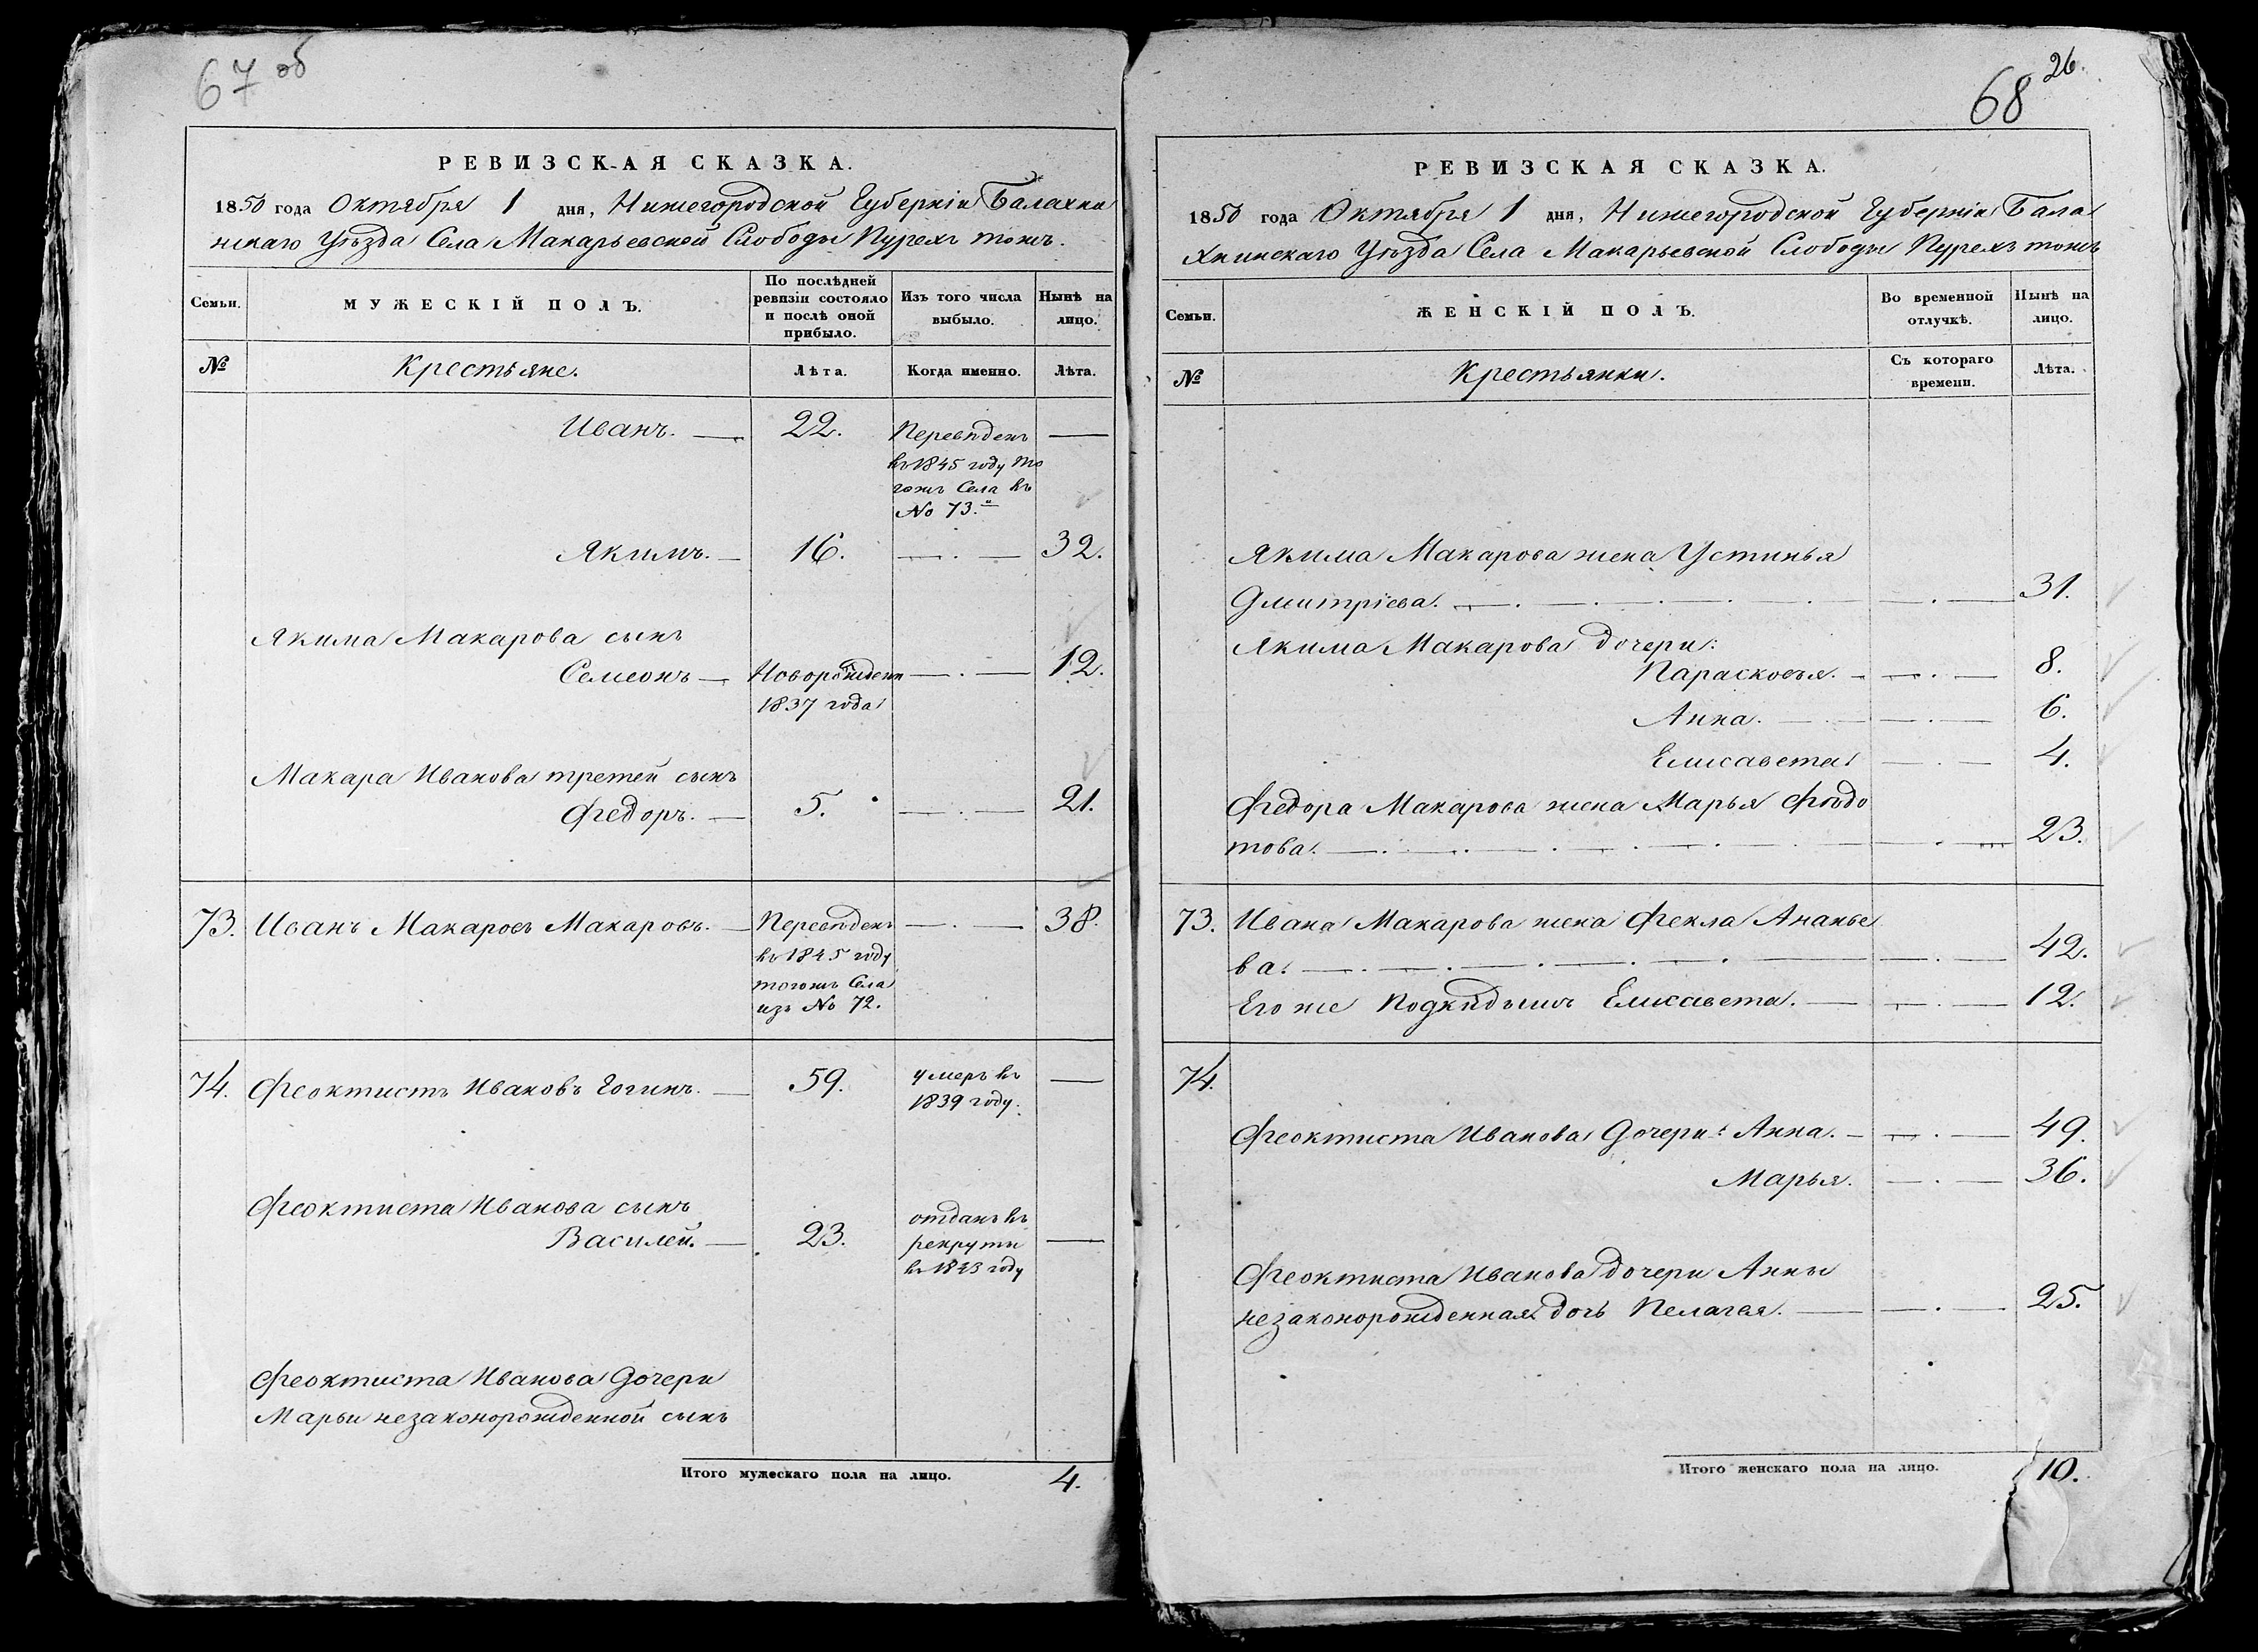 67 об
РЕВИЗСКАЯ СКАЗКА.
1850 года Октября 1 дня, Нижегородской Губерніи Балахни
нскаго Уѣзда Села Макарьевской Слободы Пурехъ тожъ.
Семьи.
МУЖЕСКІЙ ПОЛЪ.
По послѣдней
ревизіи состояло
и послѣ оной
прибыло.
Изъ того числа
выбыло.
Нынѣ на
лицо.
№
Крестьяне.
Лѣта.
Когда именно.
Лѣта.
Иванъ. 22. Переведенъ
въ 1845 году то
гожъ Села въ
№ 73.й
Якимъ. 16. 32.
Якима Макарова сынъ
Семеонъ Новорожденн 12.
1837 года
Макара Иванова третей сынъ
Федоръ. 5. 21.
73. Иванъ Макаровъ Макаровъ. Переведенъ 38.
въ 1845 году
тогожъ Села
изъ № 72.
74. Феоктистъ Ивановъ Гогинъ. 59. умеръ въ
1839 году.
Феоктиста Иванова сынъ
Василей. 23. отданъ въ
рекруты
въ 1843 году
Феоктиста Иванова Дочери
Марьи незаконорожденной сынъ
Итого мужескаго пола на лицо. 4.
68 26.
РЕВИЗСКАЯ СКАЗКА.
1850 года Октября 1 дня, Нижегородской Губерніи Бала
хнинскаго Уѣзда Села Макарьевской Слободы Пурехъ тожъ
Семьи.
ЖЕНСКІЙ ПОЛЪ.
Во временной
отлучкѣ.
Нынѣ на
лицо.
№
Крестьянки.
Съ котораго
времени.
Лѣта.
Якима Макарова жена Устинья
Дмитріева. 31.
Якима Макарова дочери:
Парасковья. 8.
Анна. 6.
Елисавета 4.
Федора Макарова жена Марья Фѣдо
това. 23.
73. Ивана Макарова жена Фекла Ананье
ва. 42.
Его же Подкидышъ Елисавета. 12.
74.
Феоктиста Иванова Дочери: Анна. 49.
Марья. 36.
Феоктиста Иванова дочери Анны
незаконорожденная дочь Пелагея. 25.
Итого женскаго пола на лицо. 10.